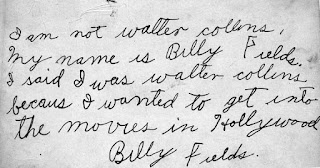 I am not walter collins,
my name is Billy Fields.
I said I was walter collins
becaus I wanted to get into
the movies in Hollywood
Billy Fields.